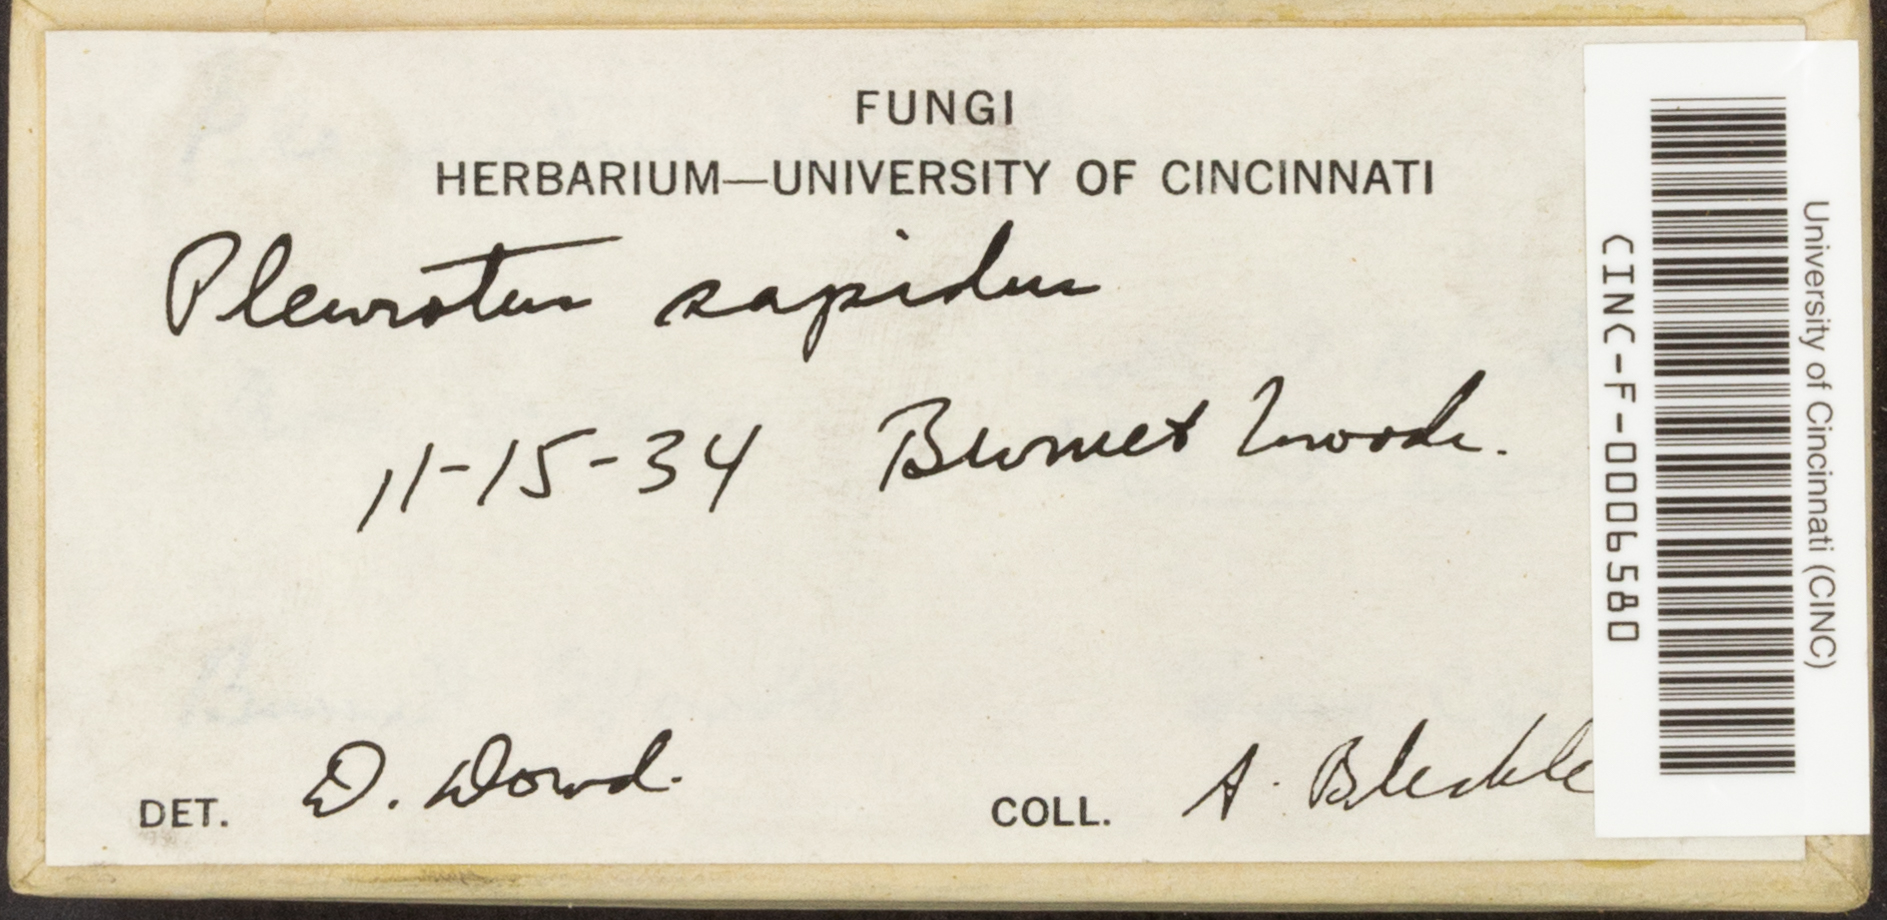 FUNGI
HERBARIUM—UNIVERSITY OF CINCINNATI
Pleurotus sapidus
11-15-34 Burnet Woods.
DET. D. Dowd.
COLL. A.
CINC-F-0006580
University of Cincinnati (CINC)